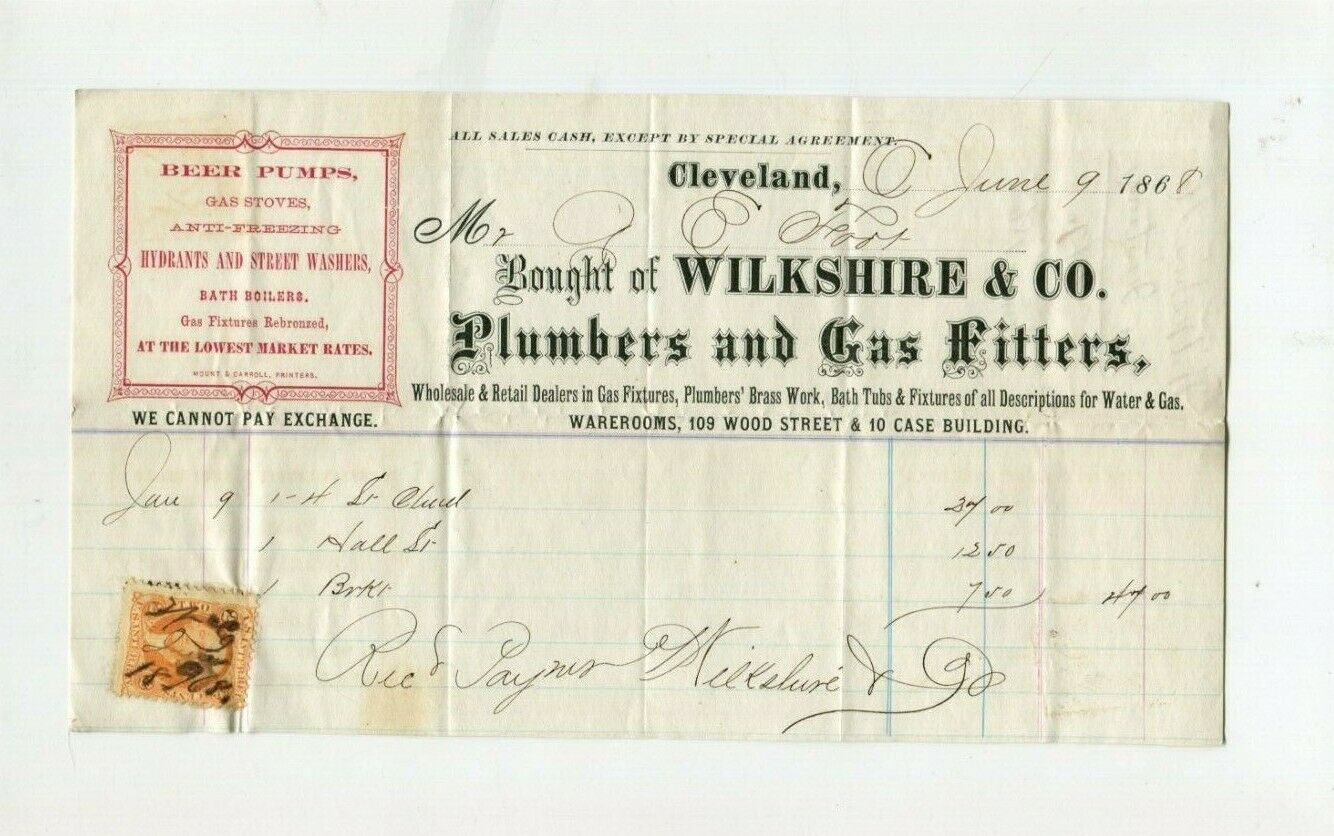 BEER PUMPS,
GAS STOVES,
ANTI-FREEZING
HYDRANTS AND STREET WASHERS,
BATH BOILERS.
Gas Fixtures Rebronzed,
AT THE LOWEST MARKET RATES.
MOUNT & CARROLL, PRINTERS.
WE CANNOT PAY EXCHANGE.
ALL SALES CASH, EXCEPT BY SPECIAL AGREEMENT.
Cleveland, O June 9 1868
Mr E Foot
Bought of WILKSHIRE & CO.
Plumbers and Gas Fitters,
Wholesale & Retail Dealers in Gas Fixtures, Plumbers' Brass Work, Bath Tubs & Fixtures of all Descriptions for Water & Gas.
WAREROOMS, 109 WOOD STREET & 10 CASE BUILDING.
9 1-4 Lt 00
1 Hall Lt 12 50
1 Brkt 7 50 47 00
Recd Wilkshire & Co
TWO